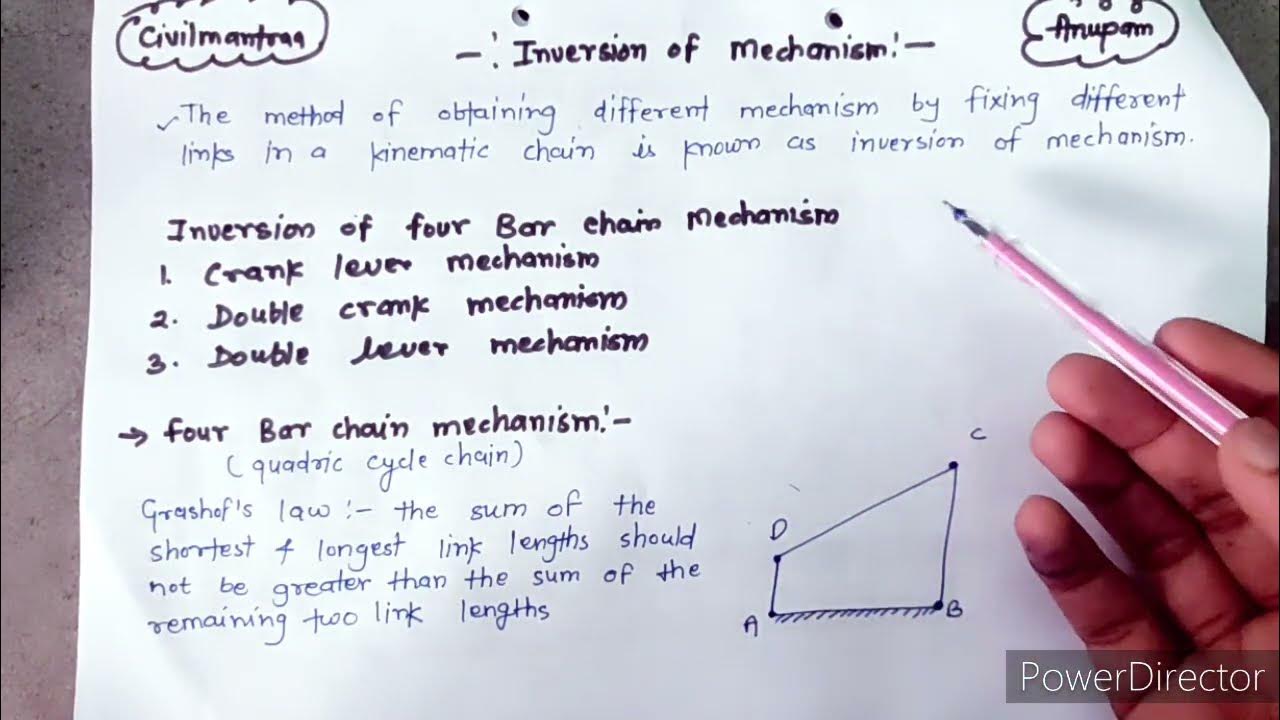 Civilmantraa
Anupam
-: Inversion of mechanism:-
✓ The method of obtaining different mechanism by fixing different
links in a kinematic chain is known as inversion of mechanism.
Inversion of four Bar chain Mechanism
1. Crank lever mechanism
2. Double crank mechanism
3. Double lever mechanism
→ four Bar chain mechanism:-
(quadric cycle chain)
Grashof's law :- the sum of the
shortest & longest link lengths should
not be greater than the sum of the
remaining two link lengths
C
D
A
B
PowerDirector